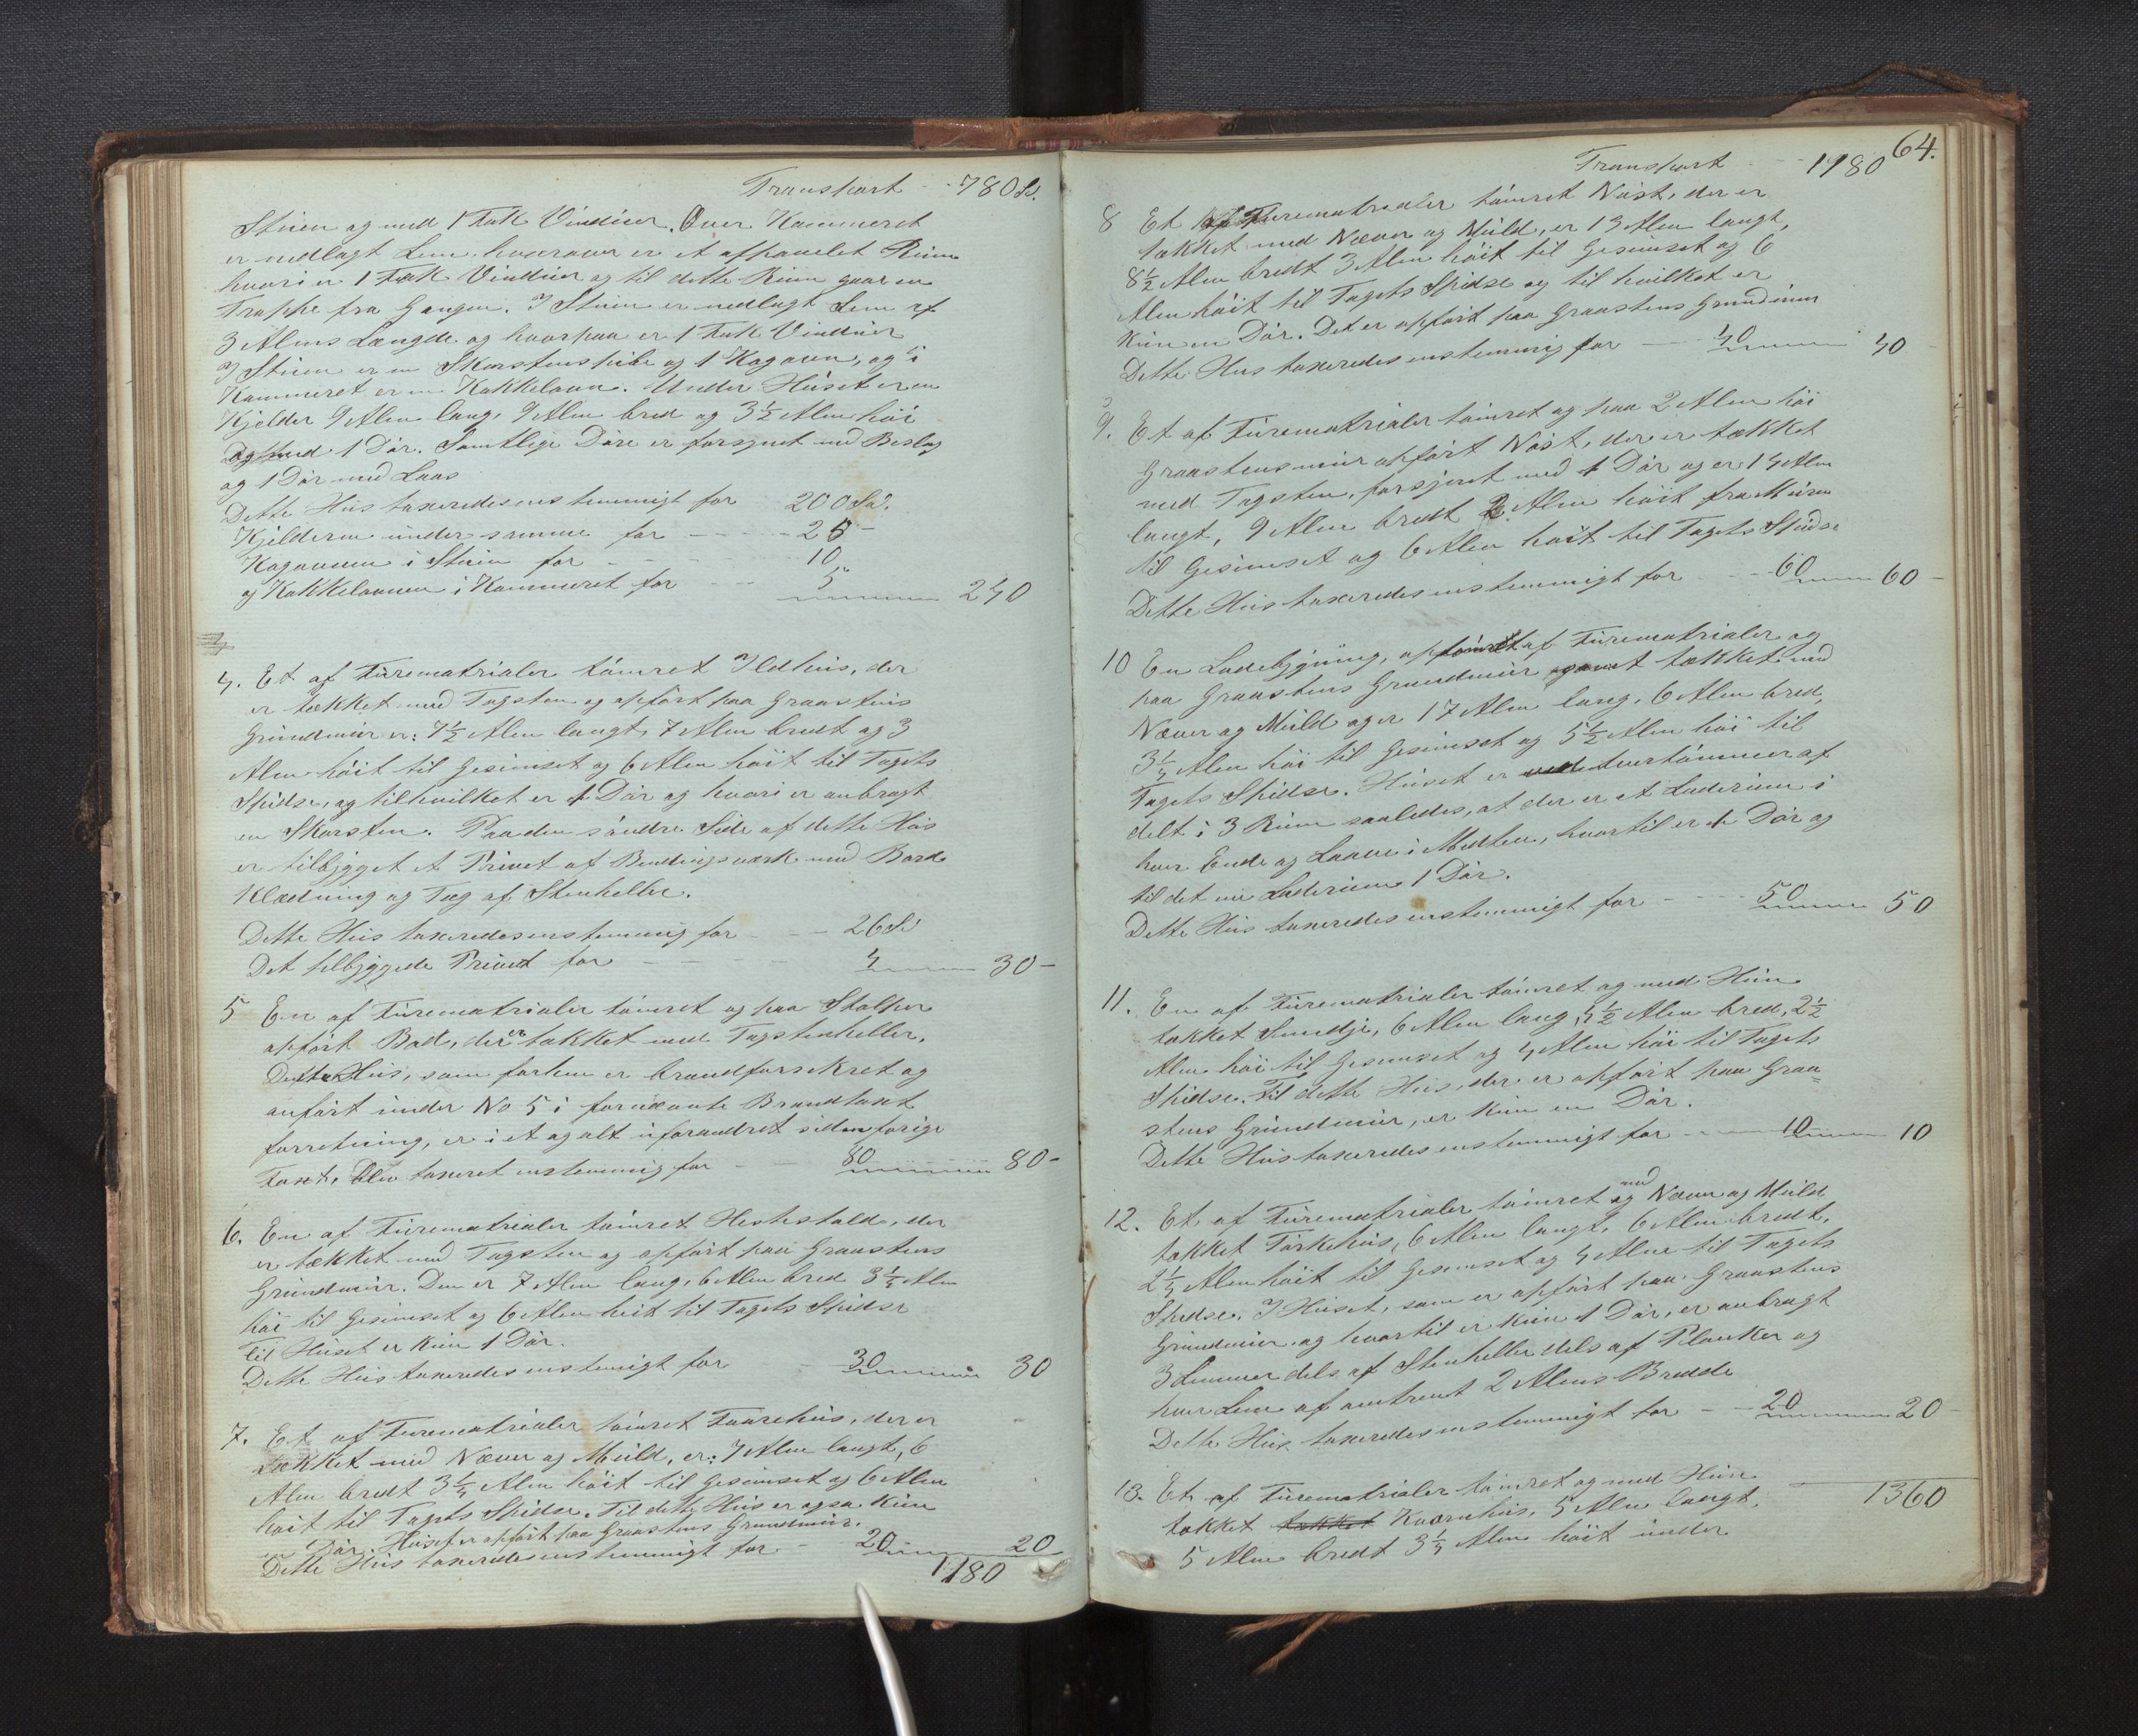 Transport - - 780 Sp.
Stuen og med 1 Fak Vinduer. Over Kammeret
er nedlagt Lem, hvorover er et afpanelet Rum
hvori er 1 Fak Vinduer og til dette Rum gaar en
Trappe fra Gangen. I Stuen er nedlagt Lem af
3 Alens Længde og hvorpaa er 1 Fak Vinduer
I Stuen er en Skorstenspibe og 1 Kogovn, og i
Kammeret er en Kakkelovn. Under Huset er en
Kjelder 9 Alen lang, 9 Alen bred og 3½ Alen höi
og med 1 Dör. Samtlige Döre er forsynet med Beslag
og 1 Dör med Laas
Dette Hus taxeredes enstemmigt for 200 Sp.
Kjelderen under samme for - - - - 25 -
Kogovnen i Stuen for - - - 10
og Kakkelovnen i Kammeret for - - - 5 " 240
4. Et af Furematrialer tömret Ildhus, der
er tækket med Tagsten og opfört paa Graastens
Grundmur er: 7½ Alen langt, 7 Alen bredt og 3
Alen höit til Gesimset og 6 Alen höit til Tagets
Spidse, og til hvilket er 1 Dör og hvori er anbragt
en Skorsten. Paa den söndre Side af dette Hus
er tilbygget et Privet af Bindingsværk med Bord
Klædning og Tag af Stenheller.
Dette Hus taxeredes enstemmig for - - 26 Sp
Det tilbyggede Privet for - - - - 4 30 -
5 En af Furematrialer tömret og paa Stolper
opfört Bod, der er tækket med Tagstenheller.
Dette Hus, som forhen er brandforsikret og
anfört under No 5 i fornævnte Brandtaxt
forretning, er i et og alt uforandret siden forige
Taxt, blev taxeret enstemmig for - - 80 80 -
6. En af Furematrialer tömret Hestestald, der
er tækket med Tagsten og opfört paa Graastens
Grundmur. Den er 7 Alen lang, 6 Alen bred 3½ Alen
höi til Gesimset og 6 Alen höit til Tagets Spidse
Til Huset er kun 1 Dör.
Dette Hus taxeredes enstemmigt for 30 30
7. Et af Furematrialer tömret Faarehus, der er
tækket med Næver og Muld, er: 7 Alen langt, 6
Alen bredt 3¼ Alen höit til Gesimset og 6 Alen
höit til Tagets Spidse. Til dette Hus er ogsa kun
en Dör. Huset er opfört paa Graastens Grundmur.
Dette Hus taxeredes enstemmigt for - 20 20
1180
64.
Transport - - 1180
8 Et af Furematrealer tömret Nöst, der er
tækket med Næver og Muld, er 13 Alen langt,
8½ Alen bredt 3 Alen höit til Gesimset og 6
Alen höit til Tagets Spidse og til hvilket er
kun en Dör. Det er opfört paa Graastens Grundmur
Dette Hus taxeredes enstemmig for - - 40 40
9. Et af Furematrialer tömret og paa 2 Alen höi
Graastensmur opfört Nöst, der er tækket
med Tagsten, forsynet med 1 Dör og er 14 Alen
langt, 9 Alen bredt 2 Alen höit fra Muren
til Gesimset og 6 Alen höit til Tagets Spidse
Dette Hus taxeredes enstemmigt for - - 60 60 -
10 En Ladebygning, optömret af Furematrialer og
paa Graastens Grundmur samt tækket med
Næver og Muld og er 17 Alen lang, 6 Alen bred,
3¼ Alen höi til Gesimset og 5½ Alen höi til
Tagets Spidse. Huset er tvertömmer af
delt i 3 Rum saaledes, at der er et Laderum i
hver Ende og Laave i Midten, hvortil er 1 Dör og
til det ene Laderum 1 Dör.
Dette Hus taxeredes enstemmigt for - - - 50 50
11. En af Furematrialer tömret og med Hun
tækket Smedje, 6 Alen lang, 5½ Alen bred, 2½
Alen höi til Gesimset og 4 Alen höi til Tagets
Spidse. Til dette Hus, der er opfört paa Graa=
stens Grundmur, er kun en Dör.
Dette Hus taxeredes enstemmigt for - - 10 10
12. Et af Furematrialer tömret og med Næver og Muld
tækket Törkehus, 6 Alen langt, 6 Alen bredt,
2¼ Alen höit til Gesimset og 4 Alen til Tagets
Spidse. I Huset, som er opfört paa Graastens
Grundmur og hvortil er kun 1 Dör, er anbragt
3 Lemmer dels af Stenheller dels af Planker og
hver Lem af omtrent 2 Alens Bredde
Dette Hus taxeredes enstemmigt for - - 20 20 -
1360
13. Et af Furematrialer tömret og med Hun
tækket tækket Kværnhus, 5 Alen langt,
5 Alen bredt 3¼ Alen höit under